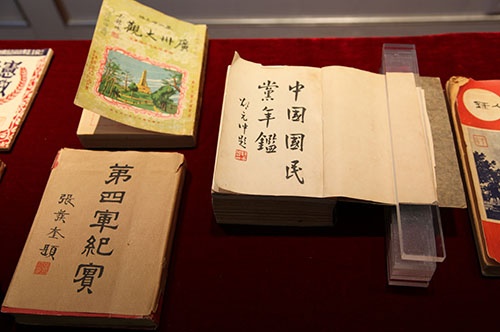 廣州大觀
中國國民
黨年鑑
邵元冲題
第四軍紀實
張發奎題